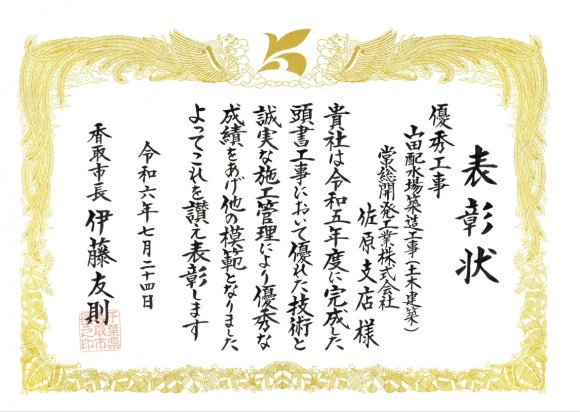 表彰状
優秀工事
山田配水場築造工事(土木建築)
常総開発工業株式会社
佐原支店様
貴社は令和五年度に完成した
頭書工事において優れた技術と
誠実な施工管理により優秀な
成績をあげ他の模範となりました
よってこれを讃え表彰します
令和六年七月二十四日
香取市長 伊藤友則
千葉県
香取市
長之印